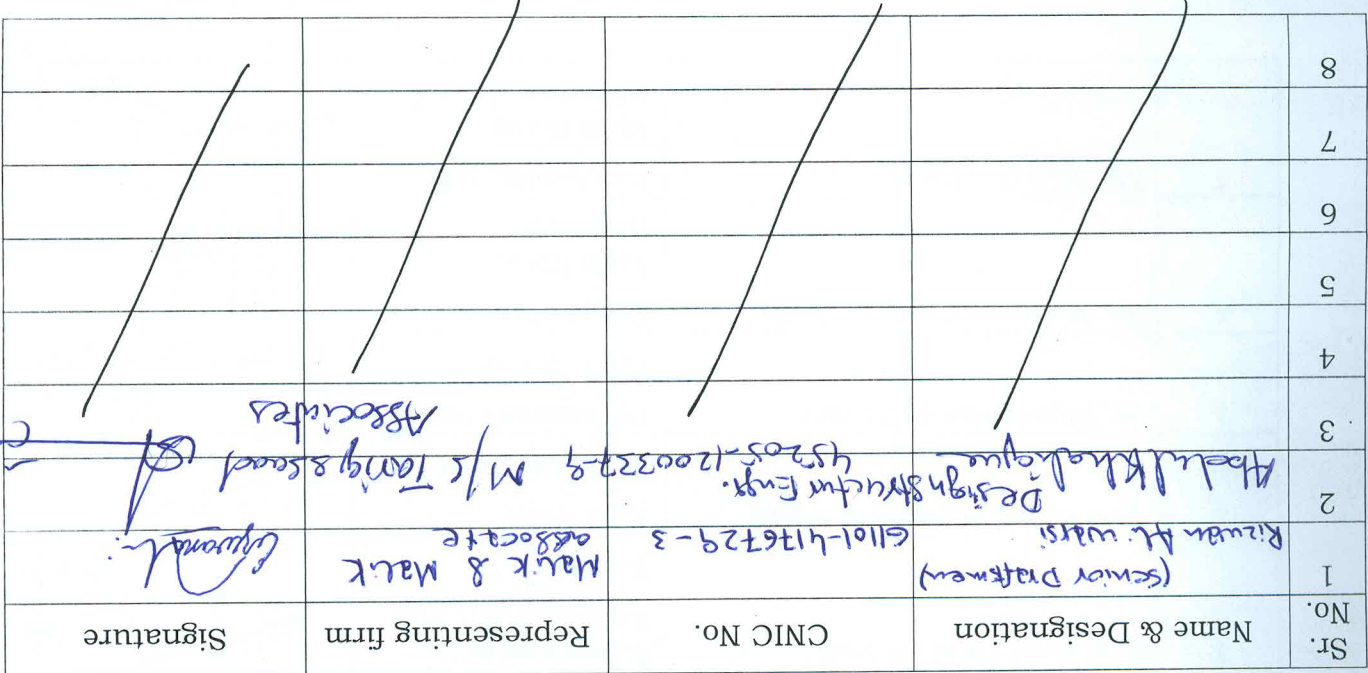 Sr. No. Name & Designation CNIC No. Representing firm Signature
1 Rizwan Ali warsi (Senior Draftsmen) 61101-4176729-3 Malik & Malik associate
2 Abdul Khalique Design Structur Engr. 45205-1200337-9 M/s Tariq & Saad Associates
3
4
5
6
7
8